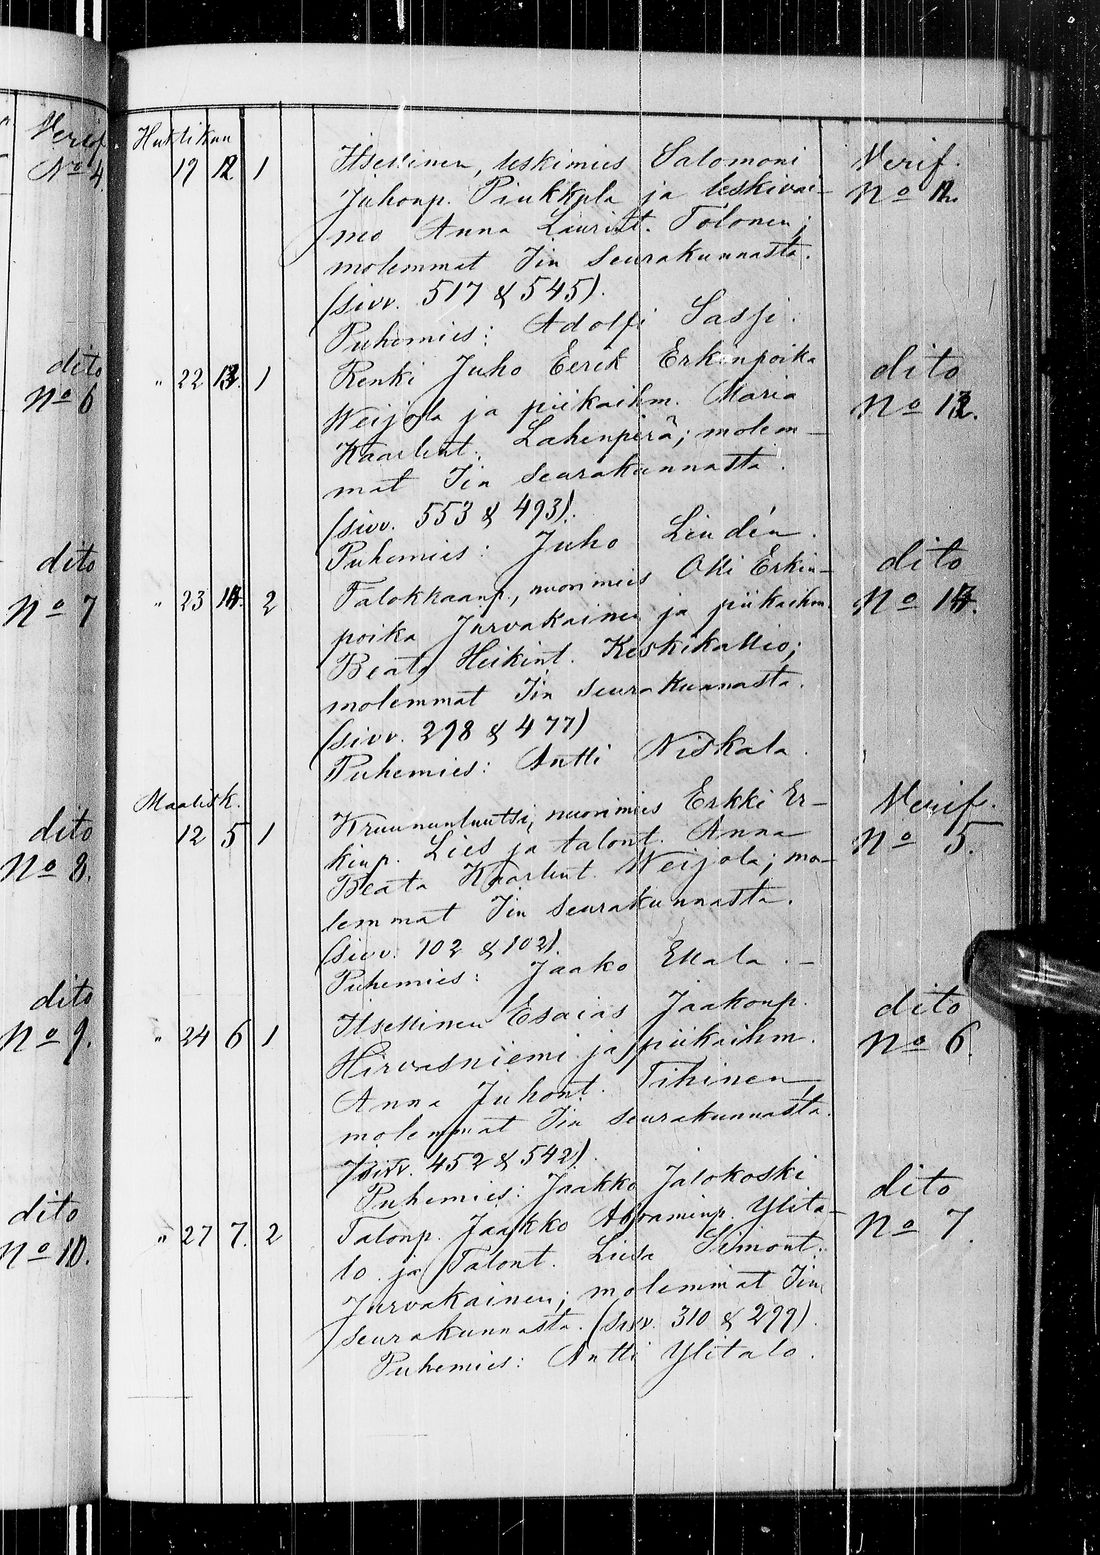 Verif.
No 4.
dito
No 6
dito
No 7
dito
No 8.
dito
No 9.
dito
No 10.
Huhtikuu
19 12 1 Itsellinen, leskimies Salomoni Verif.
Juhonp. Pinkkola ja leskivai- No 12.
mo Anna Laurint. Tolonen;
molemmat Iin seurakunnasta.
(sivv. 517 & 545).
Puhemies: Adolfi Sassi.
" 22 13. 1 Renki Juho Eerik Erkinpoika dito
Weijola ja piikaihm. Maria No 13.
Kaarlent. Lahenperä; molem-
mat Iin seurakunnasta.
(sivv. 553 & 493).
Puhemies: Juho Lindén.
" 23 14. 2 Talokkaanp., nuorimies Olli Erkin- dito
poika Jurvakainen ja piikaihm. No 14.
Beata Heikint. Keskikallio;
molemmat Iin seurakunnasta.
(sivv. 298 & 477)
Puhemies: Antti Niskala.
Maalisk.
12 5 1 Kruununluutsi, nuorimies Erkki Er- Verif.
kinp. Lies ja talont. Anna No 5.
Beata Kaarlent. Weijola; mo-
lemmat Iin seurakunnasta.
(sivv. 102 & 102).
Puhemies: Jaako Ellala. -
" 24 6 1 Itsellinen Esaias Jaakonp. dito
Hirvasniemi ja piikaihm. No 6.
Anna Juhont. Tihinen,
molemmat Iin seurakunnasta.
(sivv. 452 & 542).
Puhemies: Jaakko Jalokoski
" 27 7. 2 Talonp. Jaakko Abraminp. Ylita- dito
lo ja Talont. Liisa Simont. No 7.
Jurvakainen; molemmat Iin
seurakunnasta. (sivv. 310 & 299).
Puhemies: Antti Ylitalo.